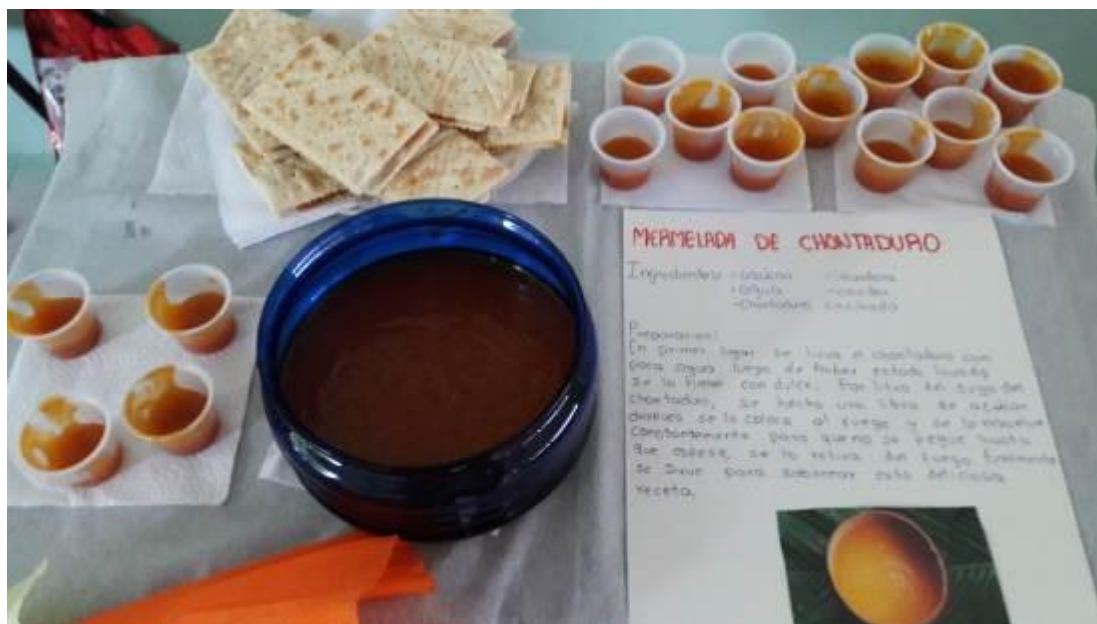 MERMELADA DE CHONTADURO
Ingredientes: -azúcar
-agua -canela
-Chontaduro cocinado
Preparación:
En primer lugar se licua el chontaduro con
poca agua luego de haber estado licuado
se lo cierne con dulce. Por litro del jugo del
chontaduro, se hecha una libra de azúcar
después se lo coloca al fuego y se lo resuelve
constantemente para que no se pegue hasta
que espese, se lo retira del fuego finalmente
se sirve para saborear esta deliciosa
receta.